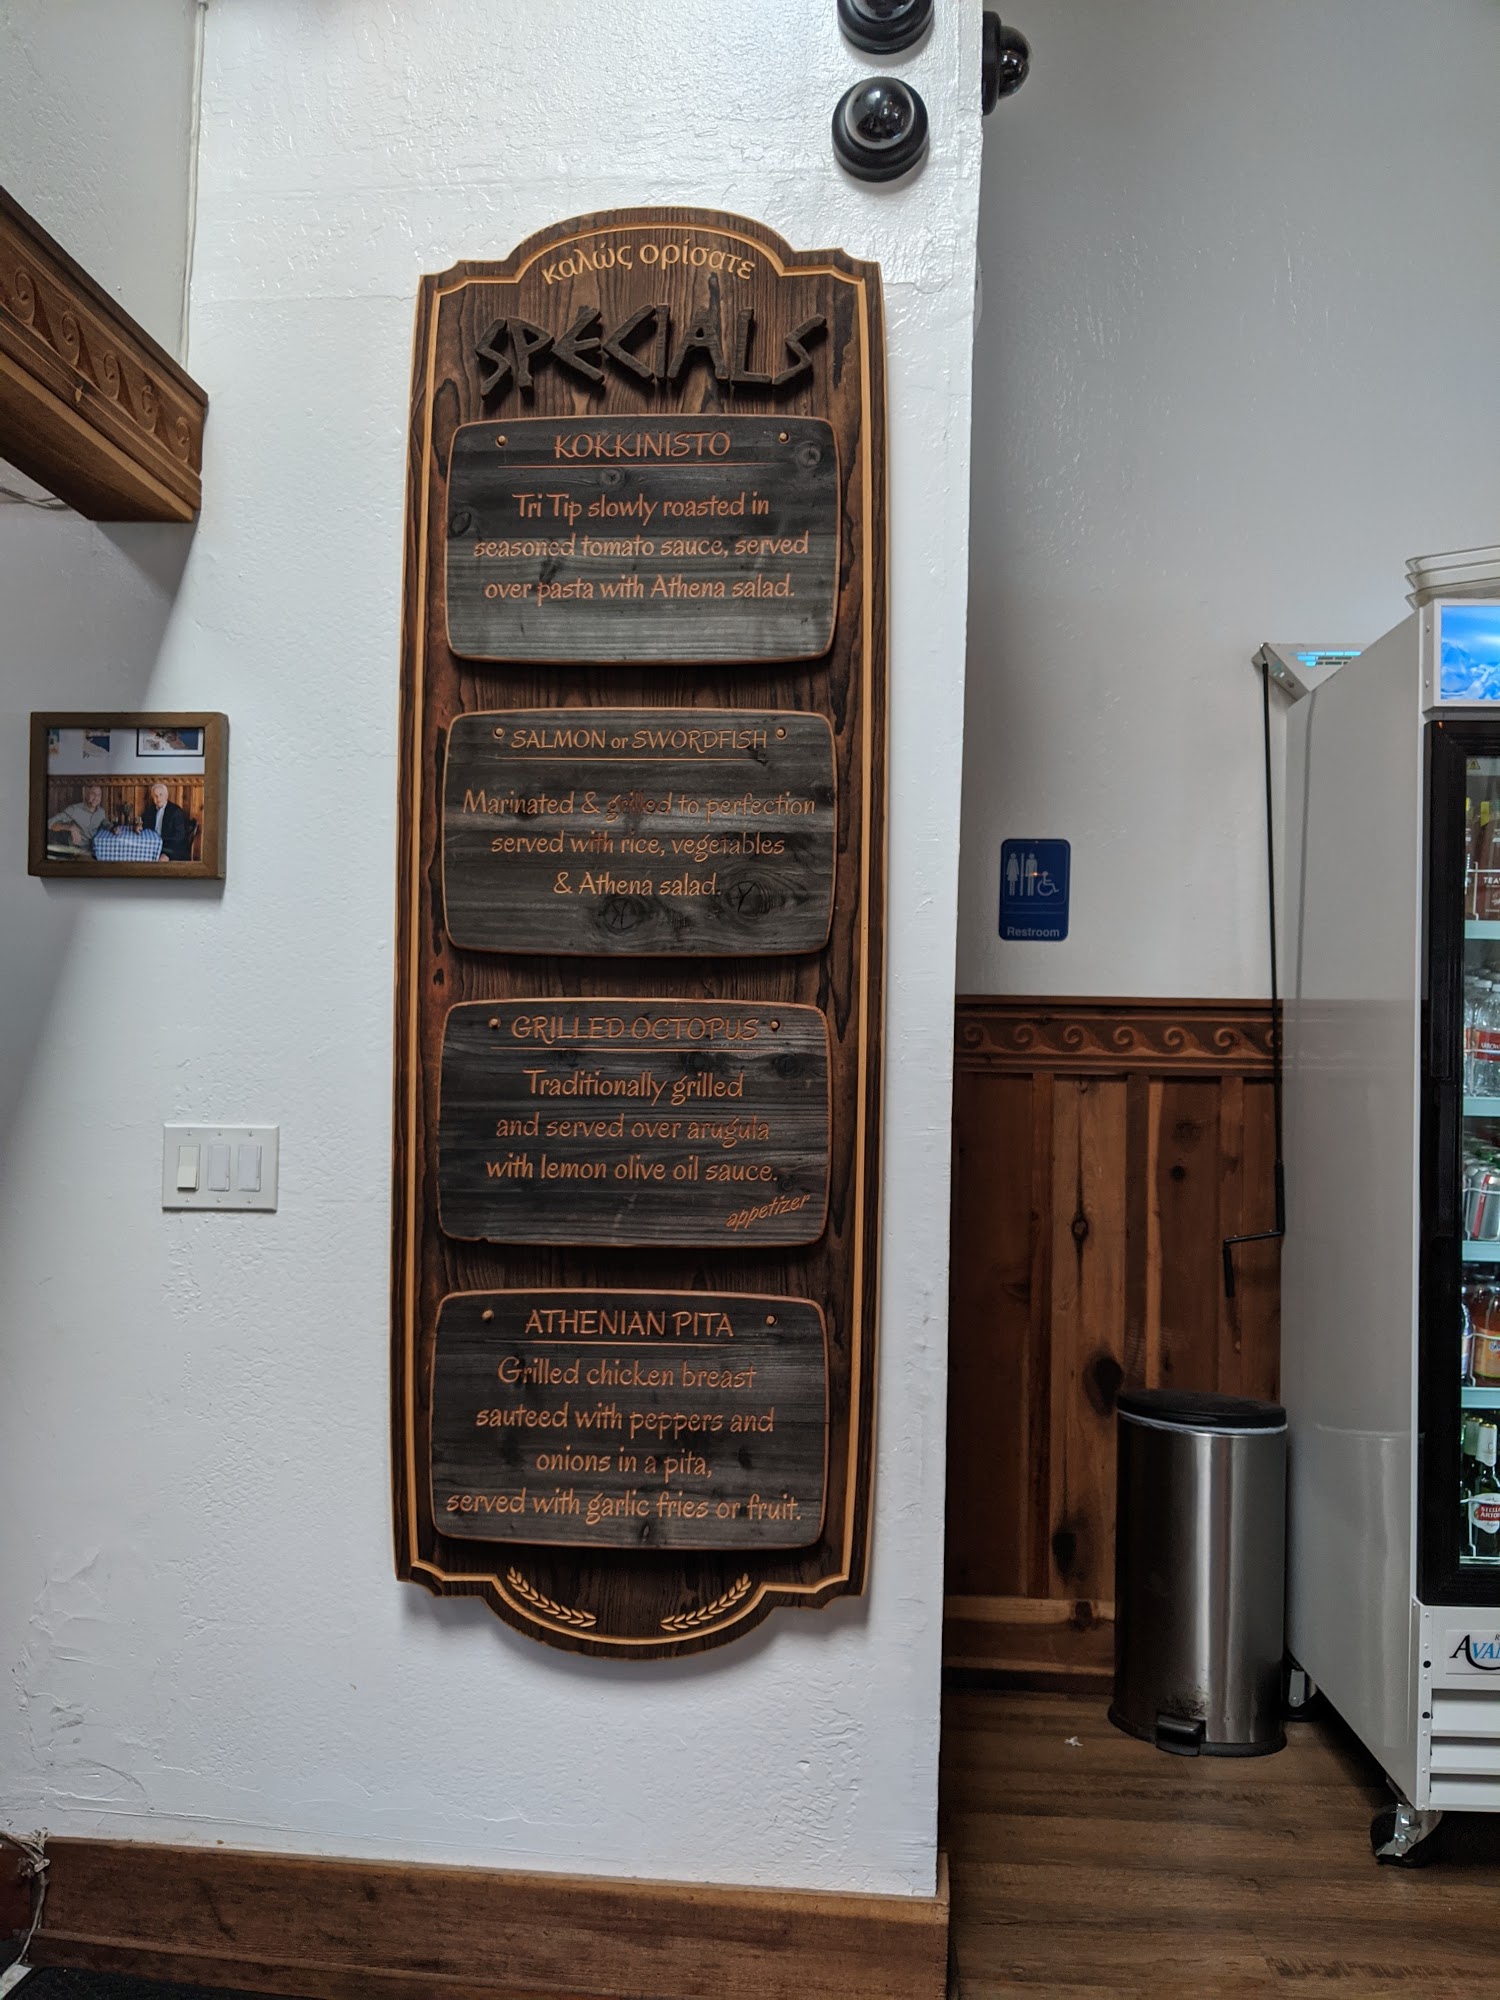 καλώς ορίσατε
SPECIALS
KOKKINISTO
Tri Tip slowly roasted in
seasoned tomato sauce, served
over pasta with Athena salad.
SALMON or SWORDFISH
Marinated & grilled to perfection
served with rice, vegetables
& Athena salad.
GRILLED OCTOPUS
Traditionally grilled
and served over arugula
with lemon olive oil sauce.
appetizer
ATHENIAN PITA
Grilled chicken breast
sauteed with peppers and
onions in a pita,
served with garlic fries or fruit.
Restroom